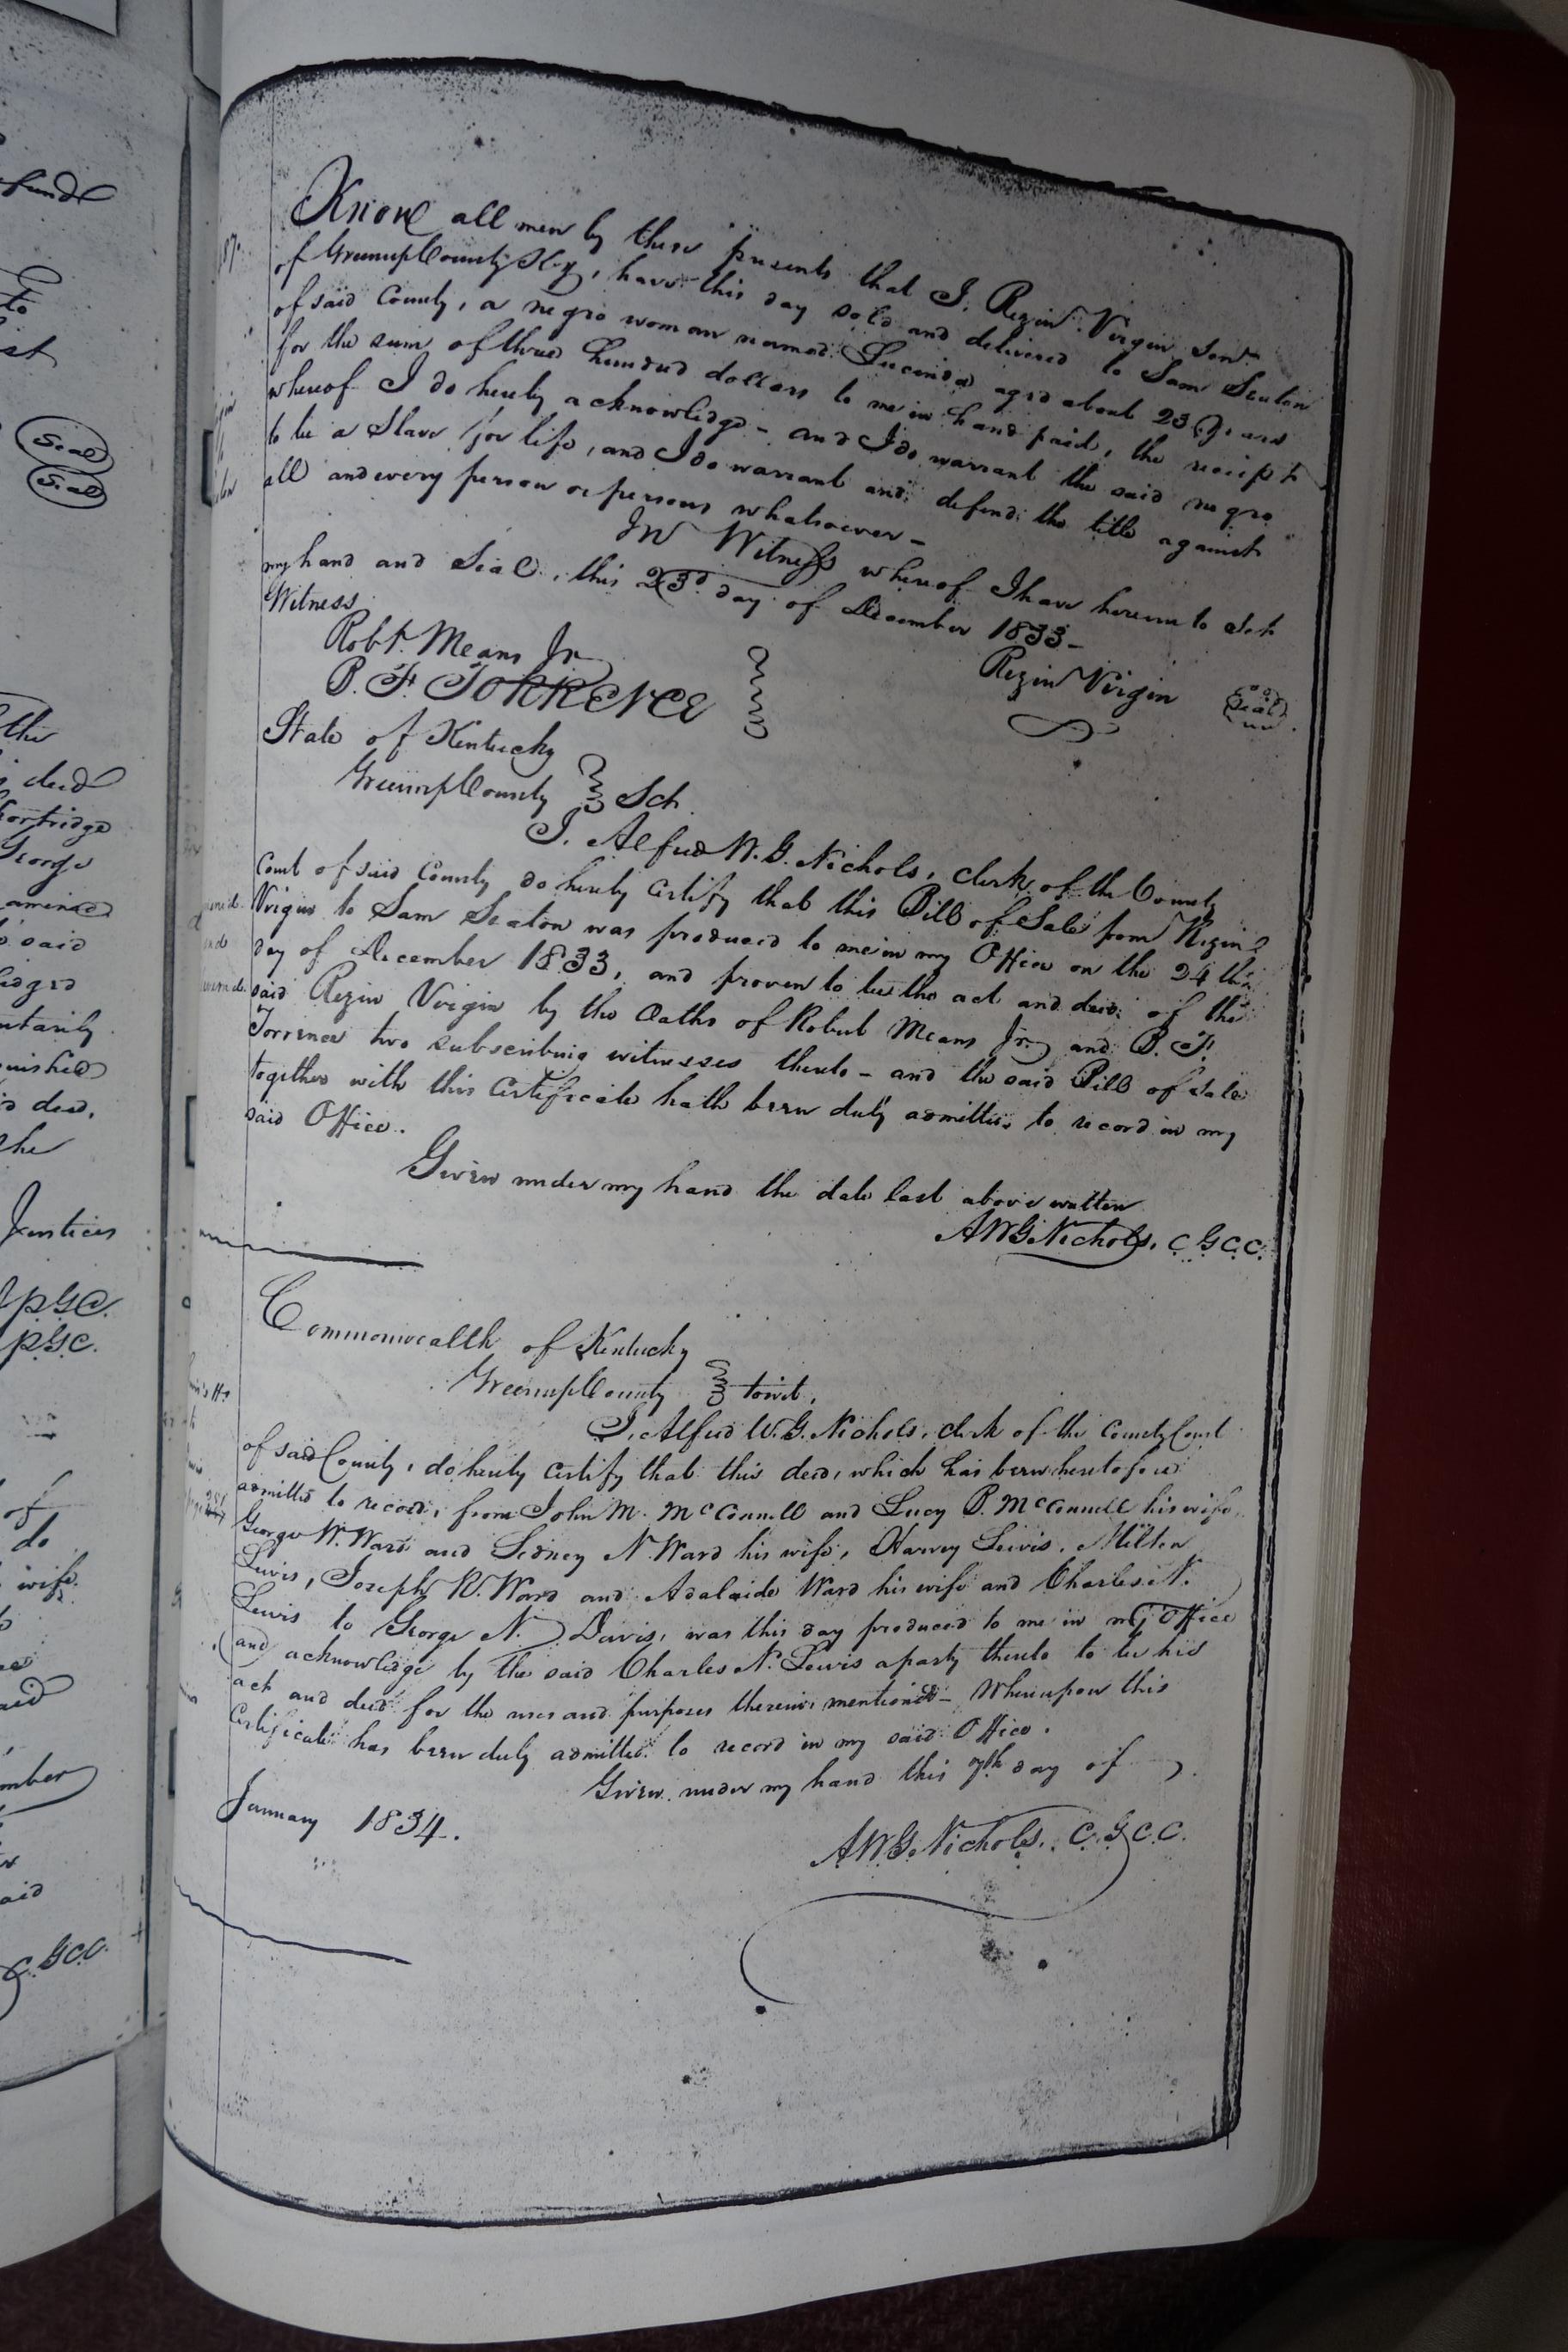 Know all men by these presents that I, Rezin Virgin Senr
of Greenup County Ky, have this day sold and delivered to Sam Seaton
of said County, a negro woman named Lucinda aged about 23 years
for the sum of three hundred dollars to me in hand paid, the receipt
whereof I do hereby acknowledge - and I do warrant the said negro
to be a Slave for life, and I do warrant and defend the title against
all and every person or persons whatsoever -
In Witness whereof I have hereunto set
my hand and Seal, this 23d day of December 1833 -
Witness
Robt. Means Jr
B. F. Torrence
Rezin Virgin
Seal
State of Kentucky
Greenup County Sct.
I. Alfred W. G. Nichols, clerk of the County
Court of said County do hereby certify that this Bill of Sale from Rezin
Virgin to Sam Seaton was produced to me in my Office on the 24th
day of December 1833, and proven to be the act and deed of the
said Rezin Virgin by the Oaths of Robert Means Jr. and B. F.
Torrence two subscribing witnesses thereto - and the said Bill of Sale
together with this Certificate hath been duly admitted to record in my
said Office.
Given under my hand the date last above written
AWG Nichols. C.G.C.C.
Commonwealth of Kentucky
Greenup County towit,
I. Alfred W. G. Nichols, clerk of the County Court
of said County, do hereby certify that this deed, which has been heretofore
admitted to record, from John M. McConnell and Lucy P. McConnell his wife,
George W. Ward and Sidney N. Ward his wife, Harvey Lewis, Milton
Lewis, Joseph R. Ward and Adalaide Ward his wife and Charles N.
Lewis to George N. Davis, was this day produced to me in my Office
and acknowledge by the said Charles N. Lewis a party thereto to be his
act and deed for the uses and purposes therein mentioned - Whereupon this
Certificate has been duly admitted to record in my said Office.
Given under my hand this 7th day of
January 1834.
AWG. Nichols. C.G.C.C.